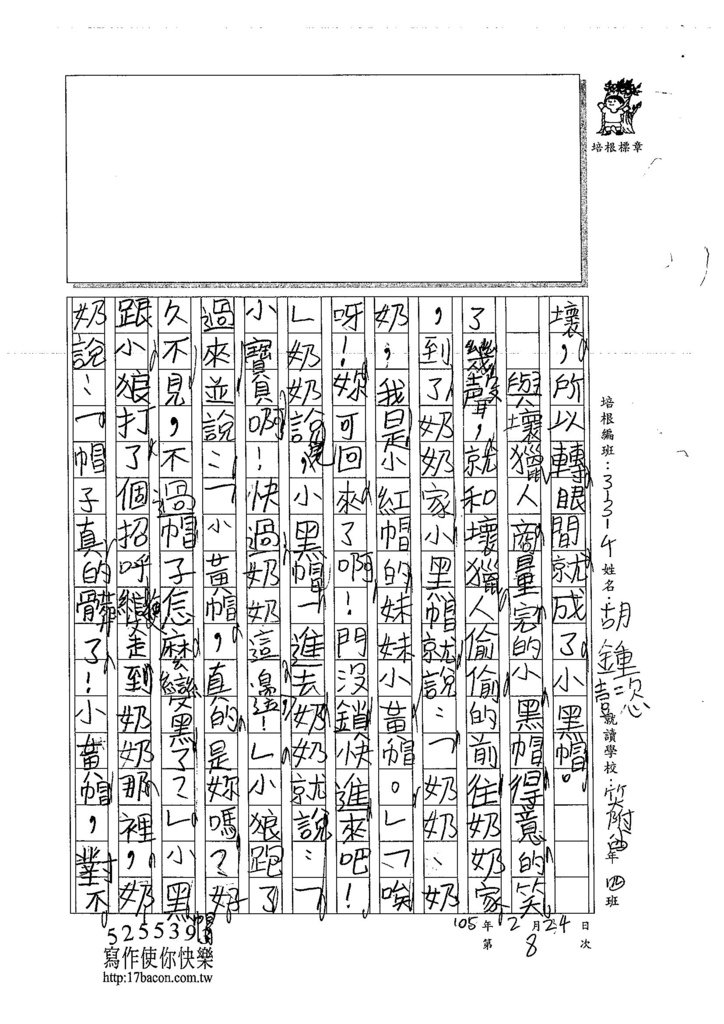 培根標章
培根編班：3314 姓名：胡鍾 就讀學校：竹附 年 四 班
壞，所以轉眼間就成了小黑帽。
與壞獵人商量完的小黑帽得意的笑
了幾聲，就和壞獵人偷偷的前往奶奶家
，到了奶奶家小黑帽就說：「奶奶：奶
奶，我是小紅帽的妹妹小黃帽。」「唉
呀！妳可回來了啊！門沒鎖快進來吧！
」奶奶說，小黑帽一進去奶奶就說：「
小寶貝啊！快過奶奶這邊！」小狼跑了
過來並說：「小黃帽，真的是妳嗎？好
久不見，不過帽子怎麼變黑了？」小黑帽
跟小狼打了個招呼後走到奶奶那裡，奶
奶說：「帽子真的髒了！小黃帽，對不
105 年 2 月 24 日
第 8 次
525539
寫作使你快樂
http:17bacon.com.tw